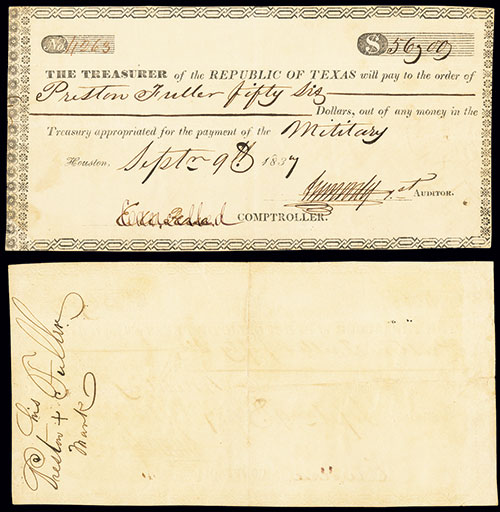 No 4063 $56,00
THE TREASURER of the REPUBLIC OF TEXAS will pay to the order of
Preston Fuller fifty six
Dollars, out of any money in the
Treasury appropriated for the payment of the Military
Houston, Septr 9th 1837
AUDITOR.
COMPTROLLER.
his
Preston + Fuller
Mark